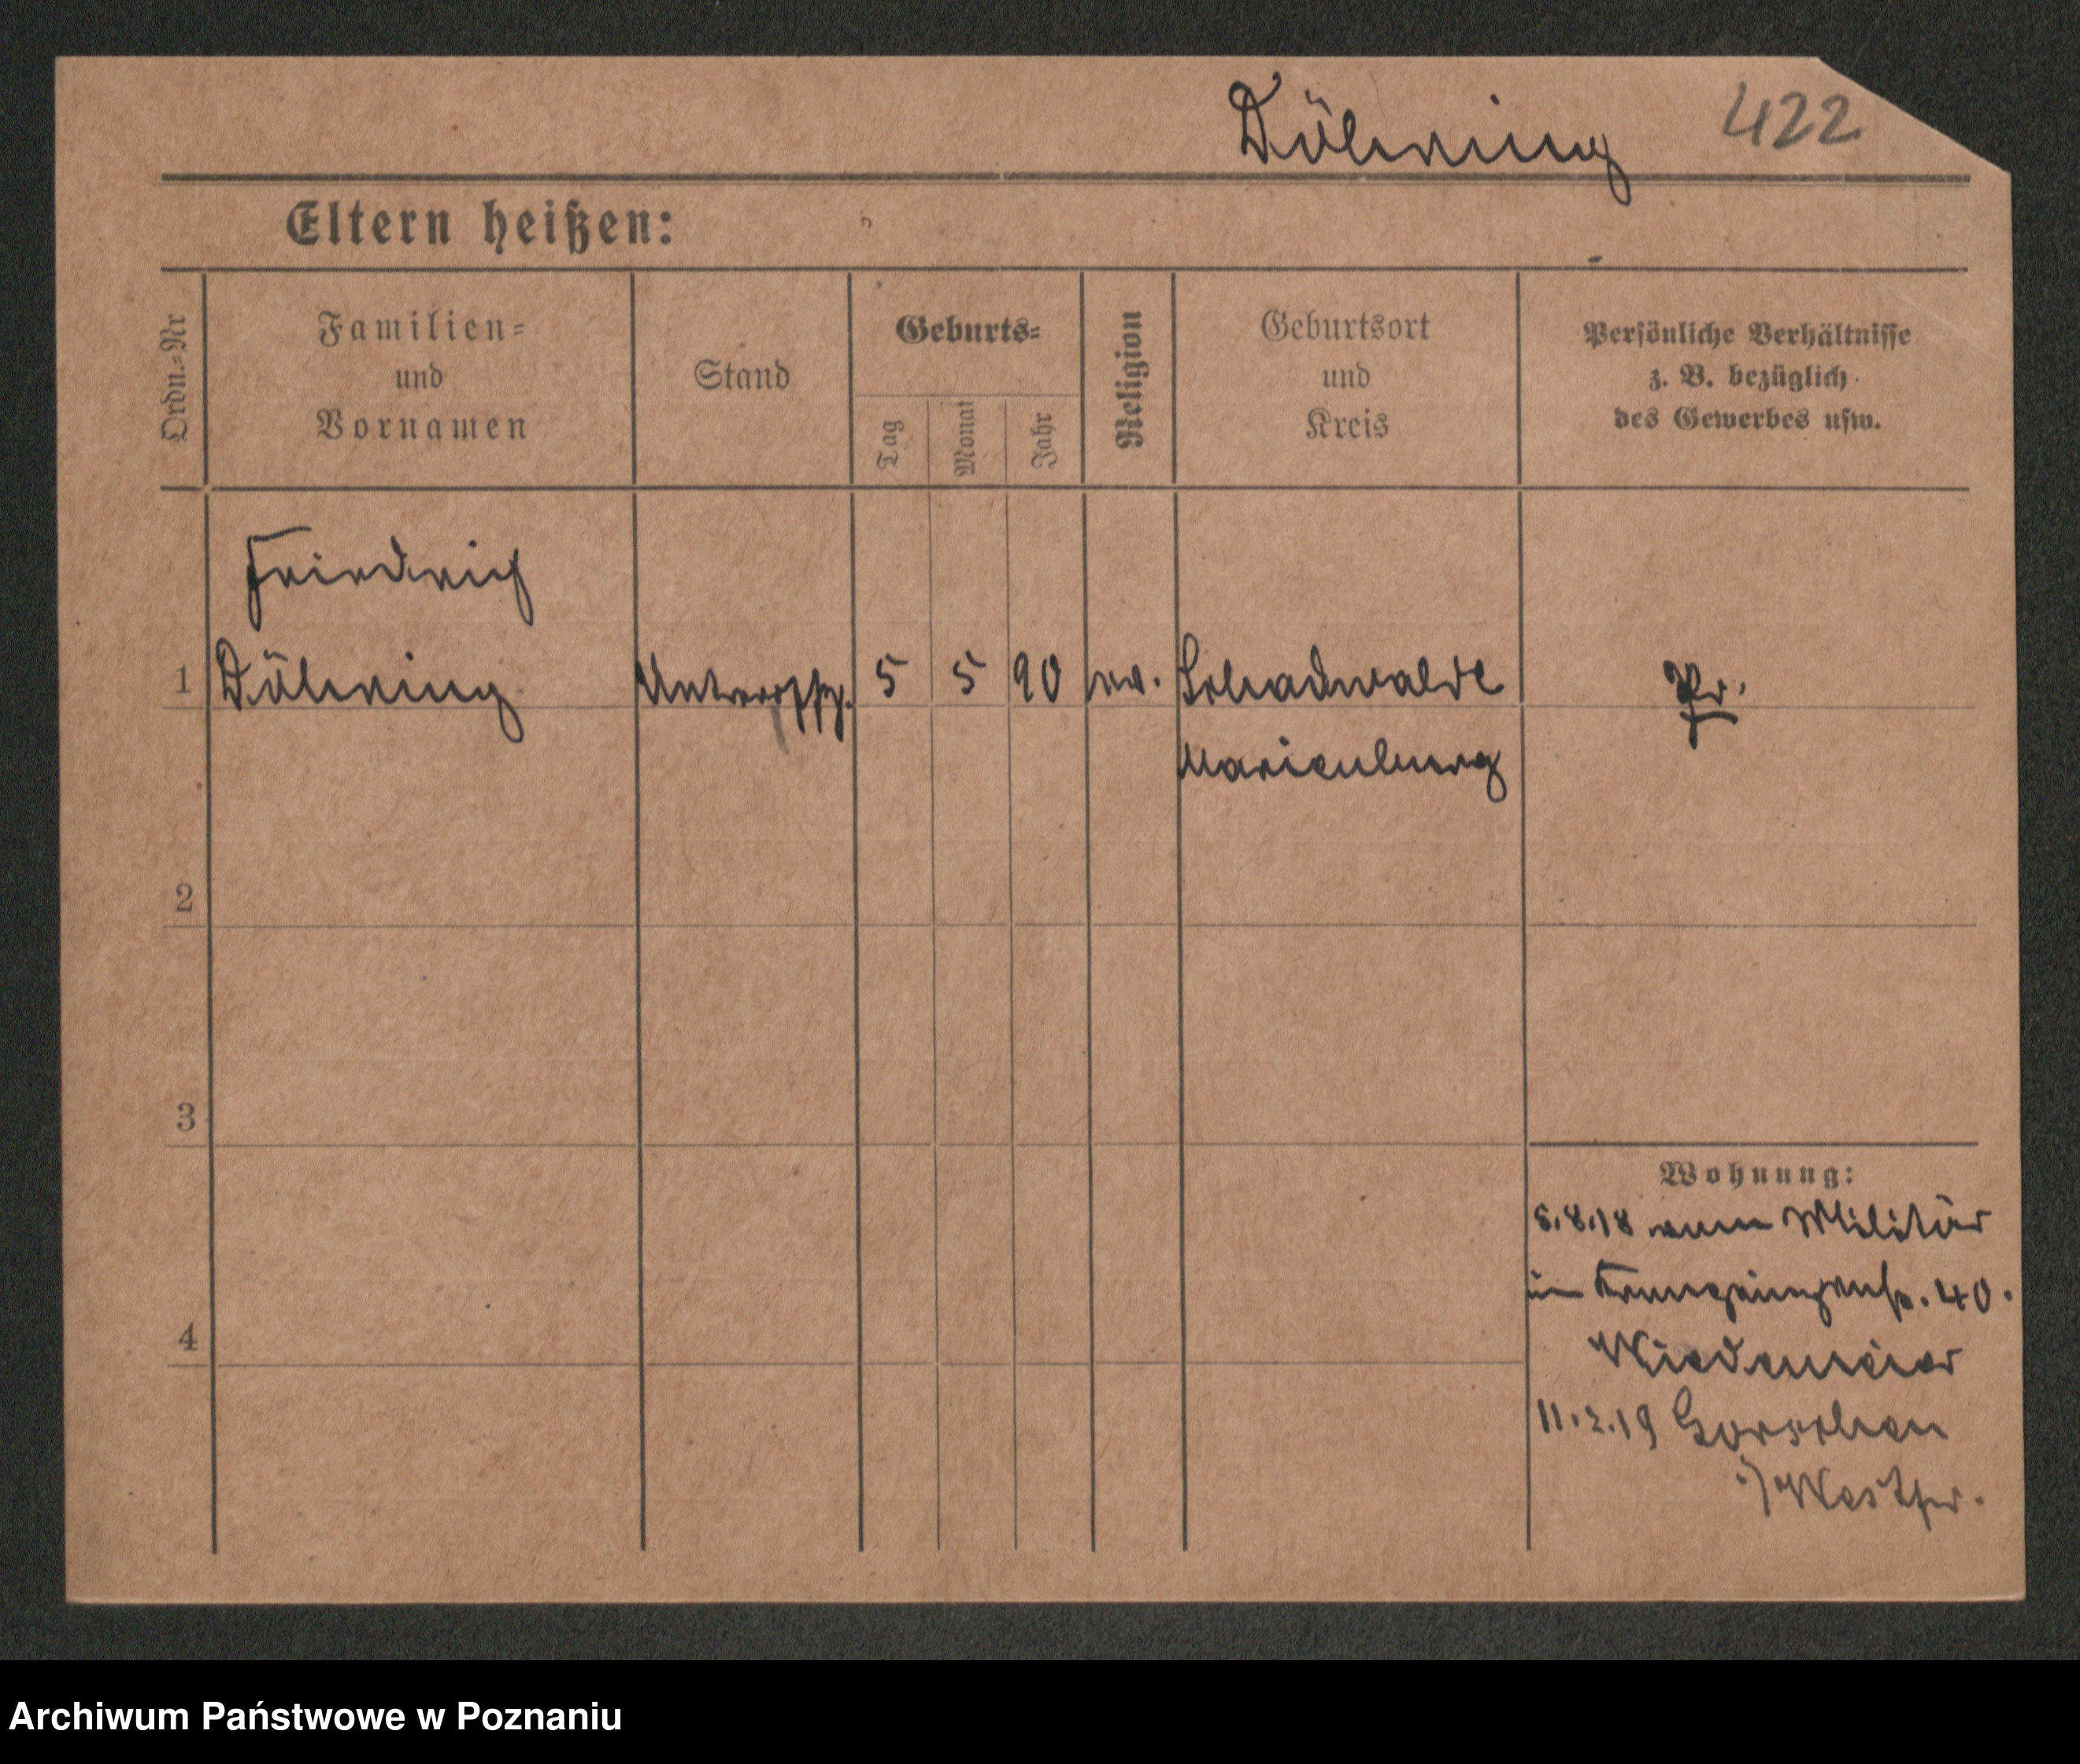 Döhring 422
Eltern heißen:
Ordn.=Nr
Familien=
und
Vornamen
Stand
Geburts=
Tag
Monat
Jahr
Religion
Geburtsort
und
Kreis
Persönliche Verhältnisse
z. B. bezüglich
des Gewerbes usw.
Friedrich
1 Döhring 5 5 90 ev. Schadwalde Pr.
Marienburg
2
3
4
Wohnung:
5.8.18 vom Militär
40.
Wiedemeier
11.2.19
i/Westpr.
Archiwum Państwowe w Poznaniu